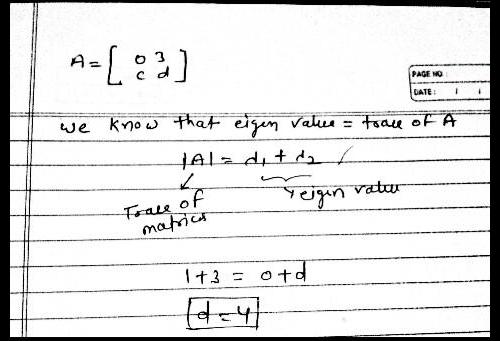 A = [ 0 3
c d ]
PAGE NO.
DATE: / /
we know that eigen value = trace of A
|A| = d1 + d2 ✓
Trace of
matrics
eigen value
1+3 = 0+d
d = 4